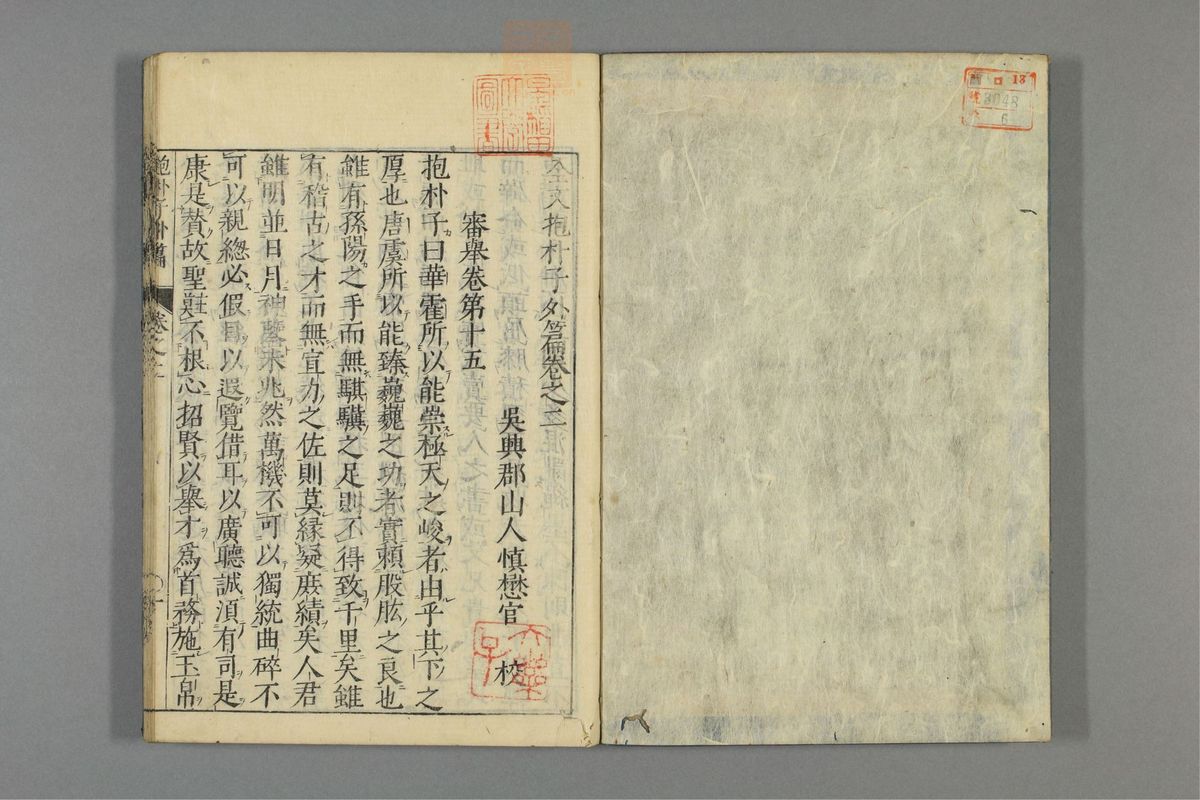 全文抱朴子外篇卷之二
吳興郡山人慎懋官 校
審舉卷第十五
抱朴子曰華霍所以能崇極天之峻者由乎其下之
厚也唐虞所以能臻巍巍之功者實賴股肱之良也
雖有孫陽之手而無騏驥之足則不得致千里矣雖
有稽古之才而無宣力之佐則莫緣凝庶績矣人君
雖明並日月神鑒未兆然萬機不可以獨統曲碎不
可以親總必假目以遐覽借耳以廣聽誠須有司是
康是贊故聖莊不根心招賢以舉才爲首務施玉帛
抱朴子外篇 卷之二 一
13
3048
6